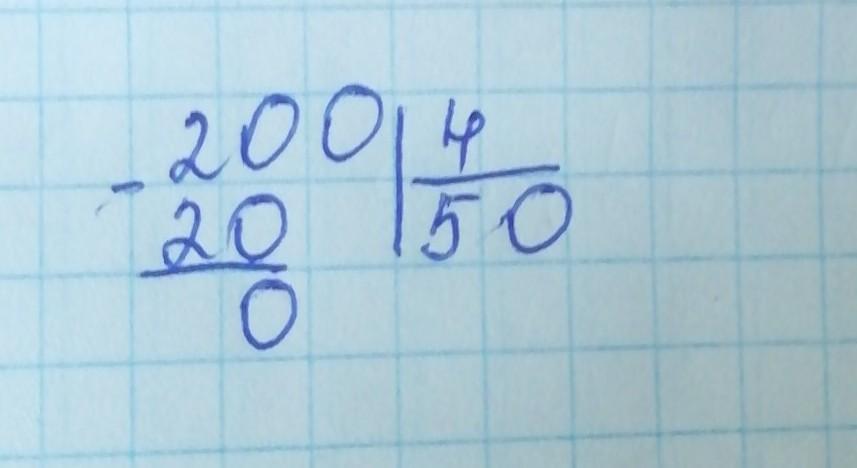 -200|4
20|50
0